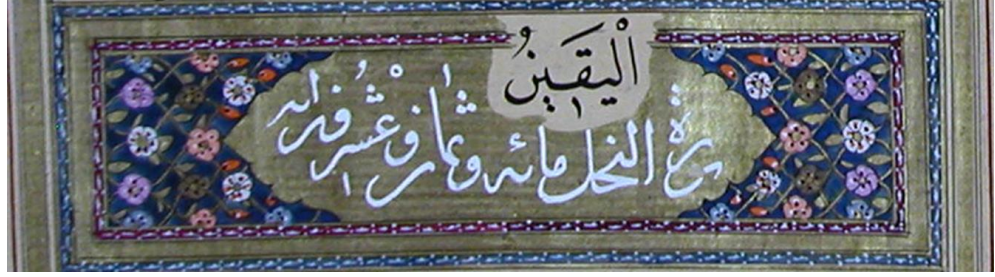 الْيَقِينُ
سورة النحل مائه وثمان وعشرون ايه